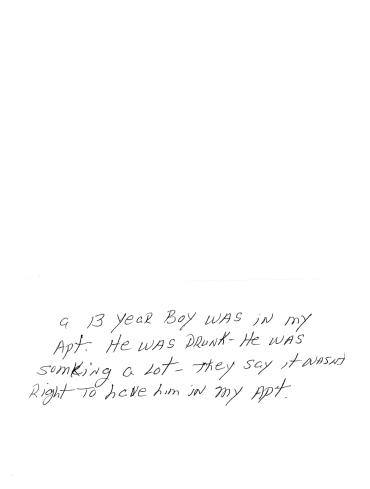 a 13 year Boy was in my
Apt. He was Drunk - He was
somking a Lot - They say it wasnt
Right To have him in my Apt.